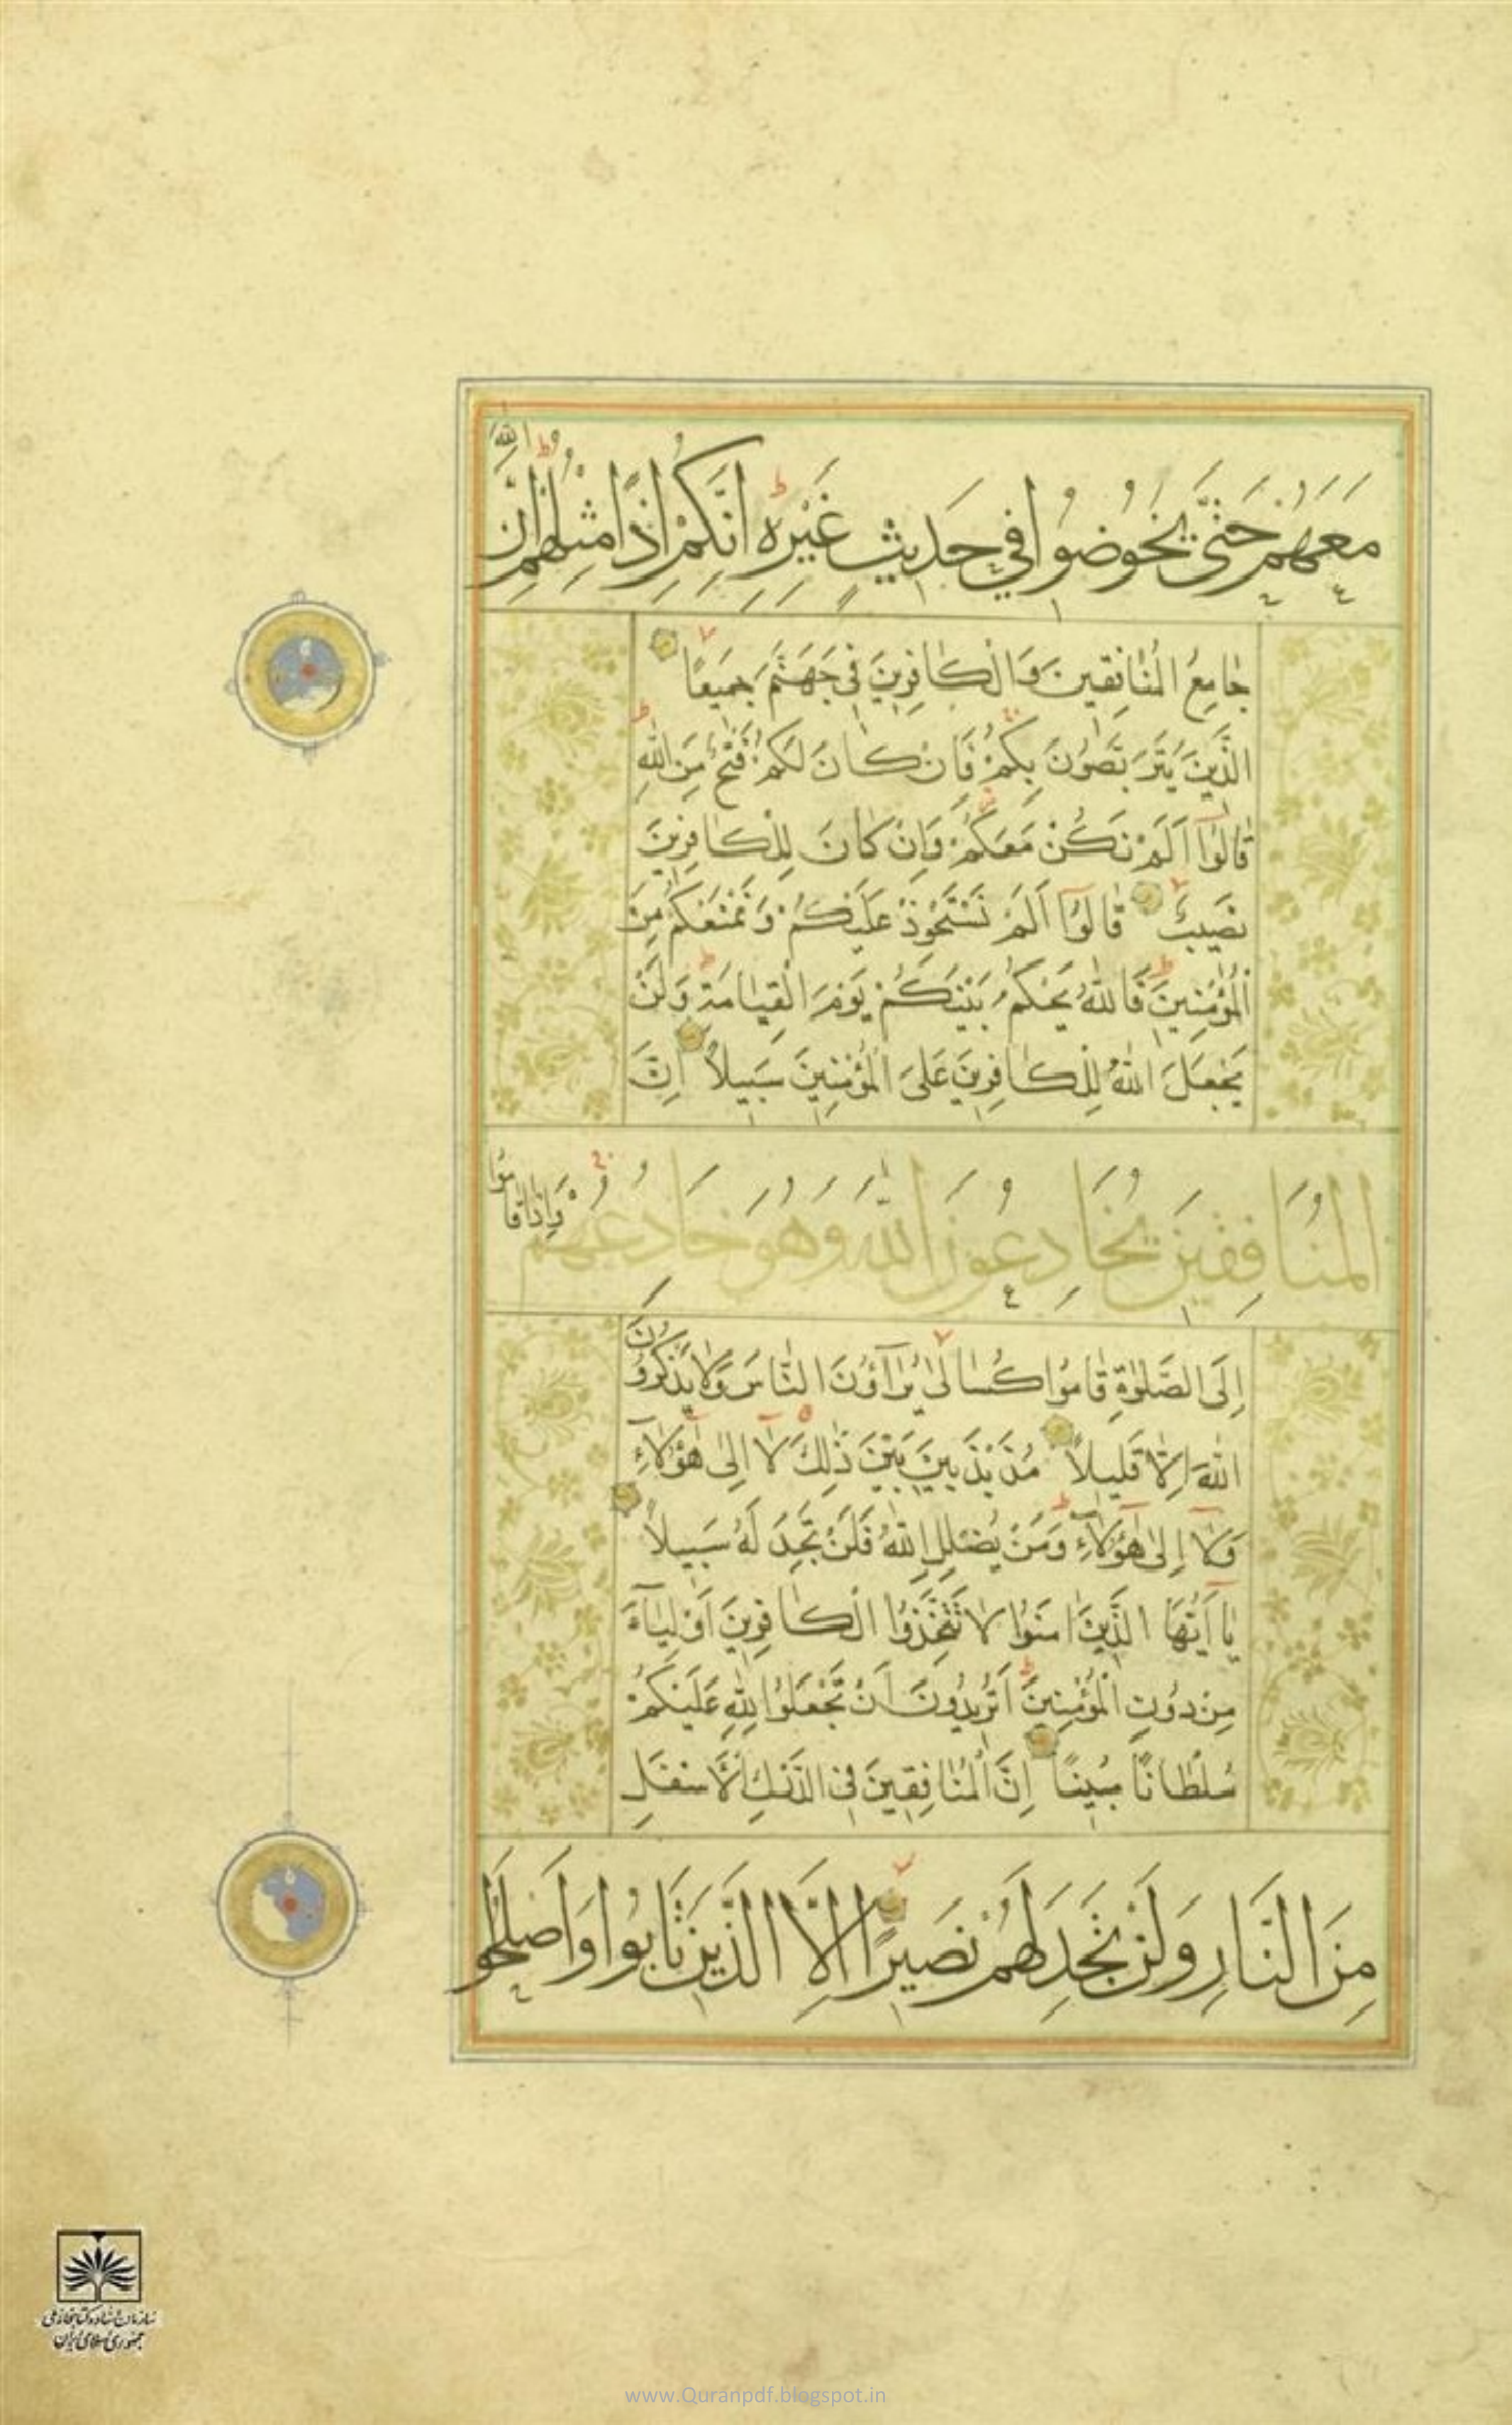 مَعَهُمْ حَتّٰى يَخُوضُوا فِي حَدِيثٍ غَيْرِهِ اِنَّكُمْ اِذًا مِثْلُهُمْ اِنَّ اللّٰهَ
جَامِعُ الْمُنَافِقِينَ وَالْكَافِرِينَ فِي جَهَنَّمَ جَمِيعًا
الَّذِينَ يَتَرَبَّصُونَ بِكُمْ فَاِنْ كَانَ لَكُمْ فَتْحٌ مِنَ اللّٰهِ
قَالُوٓا اَلَمْ نَكُنْ مَعَكُمْ وَاِنْ كَانَ لِلْكَافِرِينَ
نَصِيبٌ قَالُوٓا اَلَمْ نَسْتَحْوِذْ عَلَيْكُمْ وَنَمْنَعْكُمْ مِنَ
الْمُؤْمِنِينَ فَاللّٰهُ يَحْكُمُ بَيْنَكُمْ يَوْمَ الْقِيَامَةِ وَلَنْ
يَجْعَلَ اللّٰهُ لِلْكَافِرِينَ عَلَى الْمُؤْمِنِينَ سَبِيلاً اِنَّ
الْمُنَافِقِينَ يُخَادِعُونَ اللّٰهَ وَهُوَ خَادِعُهُمْ وَاِذَا قَامُوٓا
اِلَى الصَّلٰوةِ قَامُوا كُسَالٰى يُرَآؤُنَ النَّاسَ وَلَا يَذْكُرُونَ
اللّٰهَ اِلَّا قَلِيلاً مُذَبْذَبِينَ بَيْنَ ذٰلِكَ لَآ اِلٰى هٰٓؤُلَآءِ
وَلَآ اِلٰى هٰٓؤُلَآءِ وَمَنْ يُضْلِلِ اللّٰهُ فَلَنْ تَجِدَ لَهُ سَبِيلاً
يَآ اَيُّهَا الَّذِينَ اٰمَنُوا لَا تَتَّخِذُوا الْكَافِرِينَ اَوْلِيَآءَ
مِنْ دُونِ الْمُؤْمِنِينَ اَتُرِيدُونَ اَنْ تَجْعَلُوا لِلّٰهِ عَلَيْكُمْ
سُلْطَانًا مُبِينًا اِنَّ الْمُنَافِقِينَ فِي الدَّرْكِ الْاَسْفَلِ
مِنَ النَّارِ وَلَنْ تَجِدَ لَهُمْ نَصِيرًا اِلَّا الَّذِينَ تَابُوا وَاَصْلَحُوا
سازمان اسناد و کتابخانه ملی
جمهوری اسلامی ایران
www.Quranpdf.blogspot.in